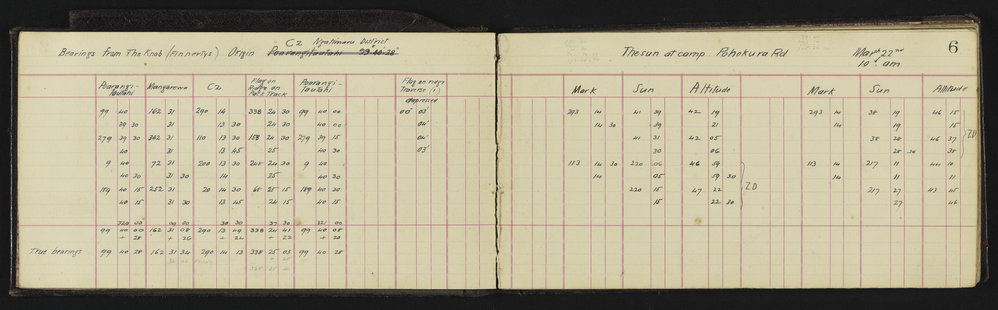 C2 Ngatimaru District
Bearings from The Knob (Finnertys) Origin Poarangitautahi 99.40.28
Poarangi-tautahi Wangarewa C2 Flag on Ridge on Pack Track Poarangi-tautahi Flag on ridge Traverse (1)
depressed
99 40 162 31 290 14 338 24 30 99 40 00 00° 03'
39 30 31 13 30 24 30 40 00 04'
279 39 30 342 31 110 13 30 158 24 30 279 39 15 04'
40 31 13 45 25 40 30 03'
9 40 72 31 200 13 30 248 24 30 9 40
40 30 31 30 14 25 40 30
189 40 30 252 31 20 14 30 68 25 15 189 40 30
40 15 31 30 13 45 24 15 40 15
320 00 00 00 30 30 37 30 321 00
99 40 00 162 31 08 290 13 49 338 24 41 99 40 08
+ 28 + 26 + 24 + 22 + 20
True bearings 99 40 28 162 31 34 290 14 13 338 25 03 99 40 28
6
The sun at camp Pohokura Rd March 22nd
10h am
Mark Sun Altitude Mark Sun Altitude
293 14 41 39 42 19 293 14 38 19 46 15
14 30 39 21 14 19 15
41 31 42 05 38 28 46 37
30 06 28 30 38
ZD
113 14 30 220 06 46 59 113 14 217 11 44 10
14 05 59 30 14 11 11
220 15 47 22 217 27 43 45
15 22 30 27 46
ZD